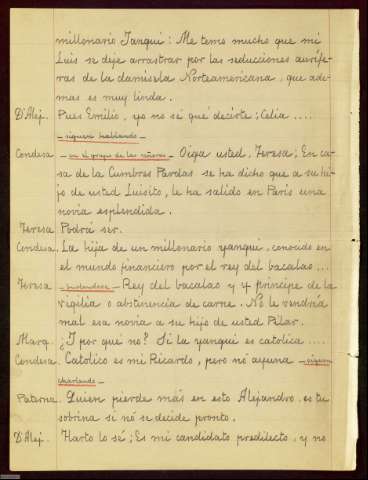 millonario Yanqui: Me temo mucho que mi
Luis se deje arrastrar por las seducciones aurífe-
ras de la damisela Norteamericana, que ade-
mas es muy linda.
D'Alej. Pues Emilio, yo no sé qué decirte; Celia .....
—siguen hablando—
Condesa —en el grupo de las señoras— Oiga usted, Teresa; En ca-
sa de la Cumbres Pardas se ha dicho que a su hi-
jo de usted Luisito, le ha salido en París una
novia esplendida.
Teresa Podrá ser.
Condesa. La hija de un millonario yanqui, conocido en
el mundo financiero por el rey del bacalao ...
Teresa — — Rey del bacalao y príncipe de la
vigilia o abstinencia de carne. No le vendría
mal esa novia a su hijo de usted Pilar.
Marq. ¿Y por qué no? Si la yanqui es catolica ....
Condesa Catolico es mi Ricardo, pero nó ayuna —siguen
charlando—
Paterna. Quien pierde más en esto Alejandro, es tu
sobrina si nó se decide pronto.
D'Alej. Harto lo sé; Es mi candidato predilecto, y no